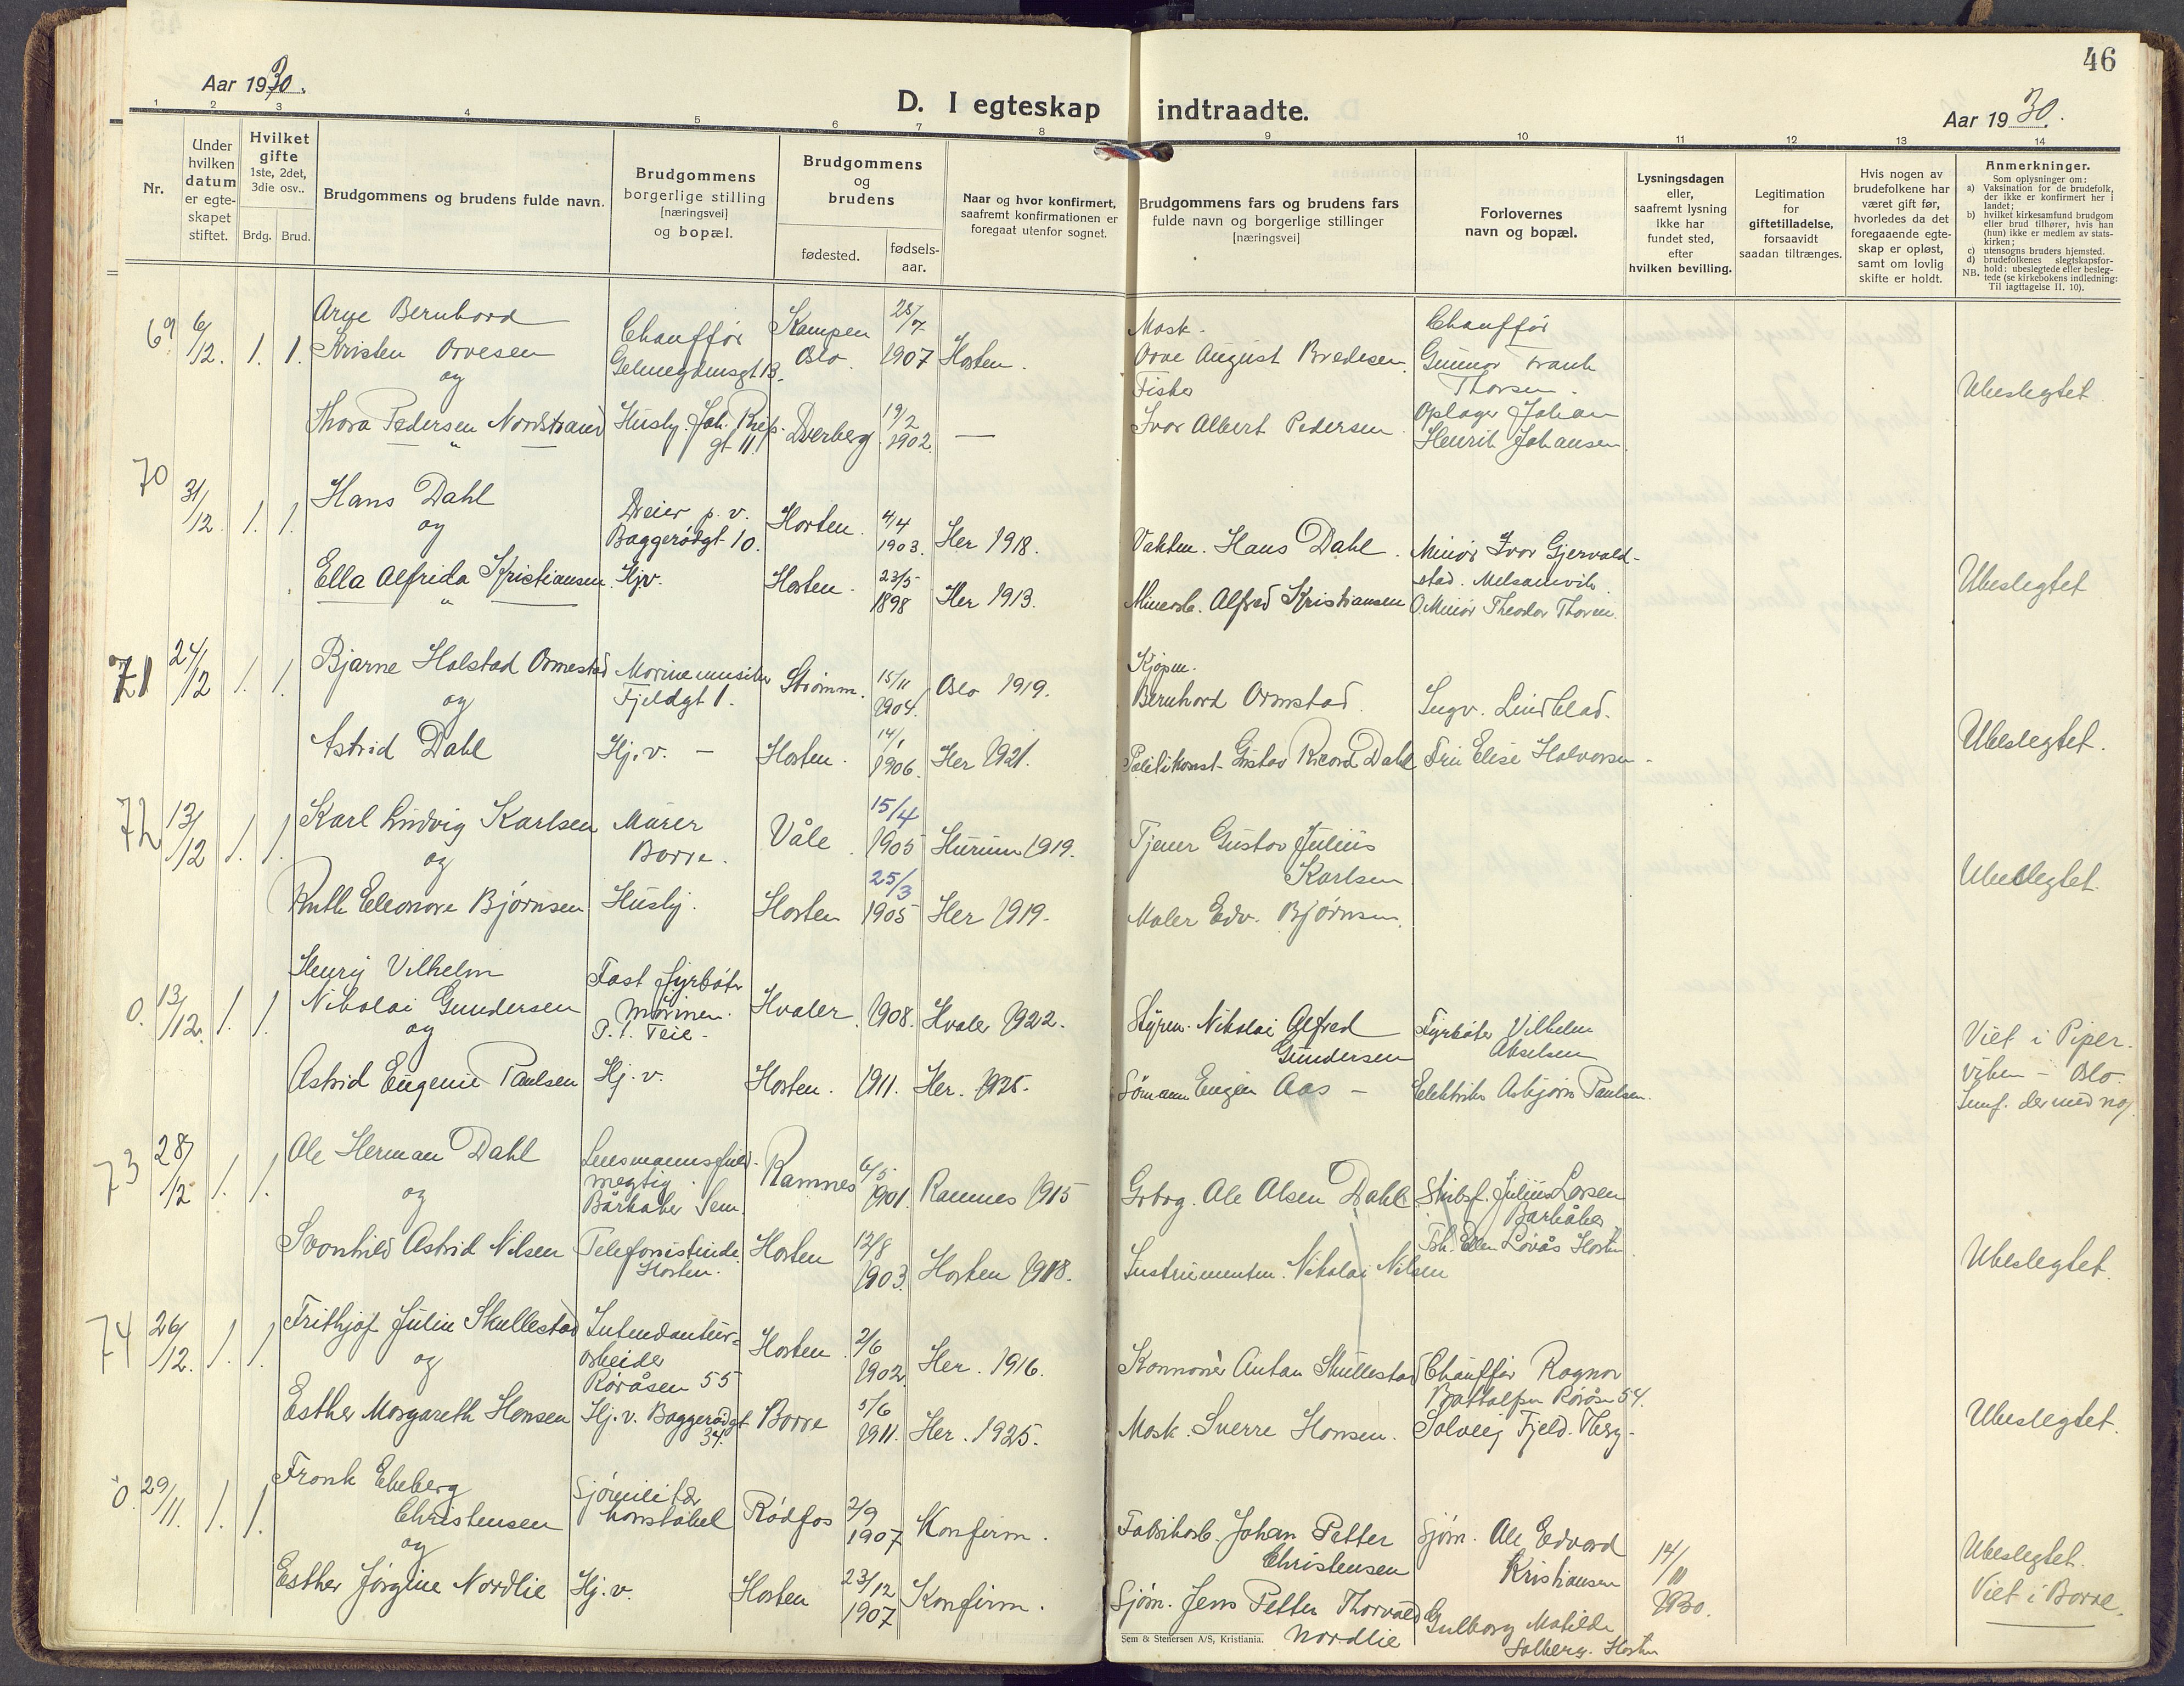 46
Aar 1930.
D. I egteskap indtraadte.
Aar 1930.
1 2 3 4 5 6 7 8 9 10 11 12 13 14
Nr.
Under hvilken datum er egteskapet stiftet.
Hvilket gifte 1ste, 2det, 3die osv..
Brdg. Brud.
Brudgommens og brudens fulde navn.
Brudgommens borgerlige stilling [næringsvei] og bopæl.
Brudgommens og brudens
fødested.
fødsels-aar.
Naar og hvor konfirmert, saafremt konfirmationen er foregaat utenfor sognet.
Brudgommens fars og brudens fars fulde navn og borgerlige stillinger [næringsvei]
Forlovernes navn og bopæl.
Lysningsdagen eller, saafremt lysning ikke har fundet sted, efter hvilken bevilling.
Legitimation for giftetilladelse, forsaavidt saadan tiltrænges.
Hvis nogen av brudefolkene har været gift før, hvorledes da det foregaaende egteskap er opløst, samt om lovlig skifte er holdt.
Anmerkninger.
Som oplysninger om:
a) Vaksination for de brudefolk, der ikke er konfirmert her i landet;
b) hvilket kirkesamfund brudgom eller brud tilhører, hvis han (hun) ikke er medlem av statskirken;
c) utensogns bruders hjemsted.
d) brudefolkenes slegtskapsforhold: ubeslegtede eller beslegtede (se kirkebokens indledning: Til iagttagelse II. 10).
NB.
69. 6/12. 1. 1.
Arne Bernhard
Kristen Arvesen
og
Chauffør
Kampen Oslo
28/7 1907
Horten.
Mask.
Arve August Bredesen.
Chauffør
Gunnar Frank
Thorsen.
Thora Pedersen Nordstrand
Husby. Joh.
gt 11.
Dverberg
19/2 1902.
—
Fisker
Ivar Albert Pedersen
Oplager Johan
Henrik Johansen.
Ubeslegtet
70 31/12. 1. 1.
Hans Dahl
og
Dreier p. v.
Baggerødgt 10.
Horten.
4/4 1903.
Her 1918.
Vaktm. Hans Dahl.
Minør Ivar Gjervald-
stad. Melsomvik
Ella Alfrida Kristiansen
Hjv.
Horten.
23/5 1898
Her 1913.
Minearb. Alfred Kristiansen
O. Minør Theodor Thoren.
Ubeslegtet
71 24/12 1. 1.
Bjarne Halstad Ormestad
og
Marinemusiker
Fjeldgt 1.
Strømm.
15/11 1904.
Oslo 1919.
Kjøpm.
Bernhard Ormstad.
Ingv. Lindblad.
Astrid Dahl
Hj.v. —
Horten.
14/1 1906.
Her 1921.
Politikonst. Gustav Ricard Dahl
Fru Elise Halvorsen
Ubeslegtet.
72 13/12 1. 1.
Karl Ludvig Karlsen
og
Murer
Borre.
Våle
15/4 1905
Hurum 1919.
Tjener Gustav Julius
Karlsen
Ruth Eleonore Bjørnsen
Husbj.
Horten
25/3 1905
Her 1919.
Maler Edv. Bjørnsen.
Ubeslegtet.
0. 13/12. 1. 1.
Henry Vilhelm
Nikolai Gundersen
og
Fast fyrbøter
Marinen.
P. t. Teie.
Hvaler
1908.
Hvaler 1922.
Styrm. Nikolai Alfred
Gundersen
Fyrbøter Vilhelm
Akselsen
Astrid Eugenie Paulsen
Hj. v.
Horten.
1911.
Her. 1925.
Sømann Eugen Aas —
Elektriker Asbjørn Paulsen.
Viet i Piper-
viken — Oslo.
73 28/12 1. 1.
Ole Herman Dahl
og
Lensmannsfuld-
megtig.
Bårkaker Sem.
Ramnes
6/5 1901.
Ramnes 1915
Grbrg. Ole Olsen Dahl.
Skibsf. Julius Larsen
Barkåker
Svanhild Astrid Nilsen
Telefonistinde
Horten.
Horten
12/8 1903.
Horten 1918.
Instrumentm. Nikolai Nilsen
Frk. Ellen Løvås Horten
Ubeslegtet.
74 26/12. 1. 1.
Frithjof Julin Skullestad
og
Intendantur-
arbeider
Røråsen 55
Horten
2/6 1902.
Her. 1916.
Kannonér Anton Skullestad
Chauffør Ragnar
Battalfsen Røråsen 54.
Esther Margareth Hansen
Hj. v. Baggerødgt.
34.
Borre
5/6 1911.
Her. 1925.
Mask. Sverre Hansen.
Solveig Fjeld.
Ubeslegtet.
0. 29/11. 1. 1.
Frank Ekeberg
Christensen
og
Sjømilitær
konstabel
Rødfos
2/9 1907
Konfirm.
Fabrikarb. Johan Petter
Christensen
Sjøm. Ole Edvard
Kristiansen
14/11 1930.
Esther Jørgine Nordlie
Hj. v.
Horten
23/12 1907
Konfirm.
Sjøm. Jens Petter Thorvald
Nordlie
Gulborg Matilde
Solberg. Horten
Ubeslegtet.
Viet i Borre.
Sem & Stenersen A/S, Kristiania.